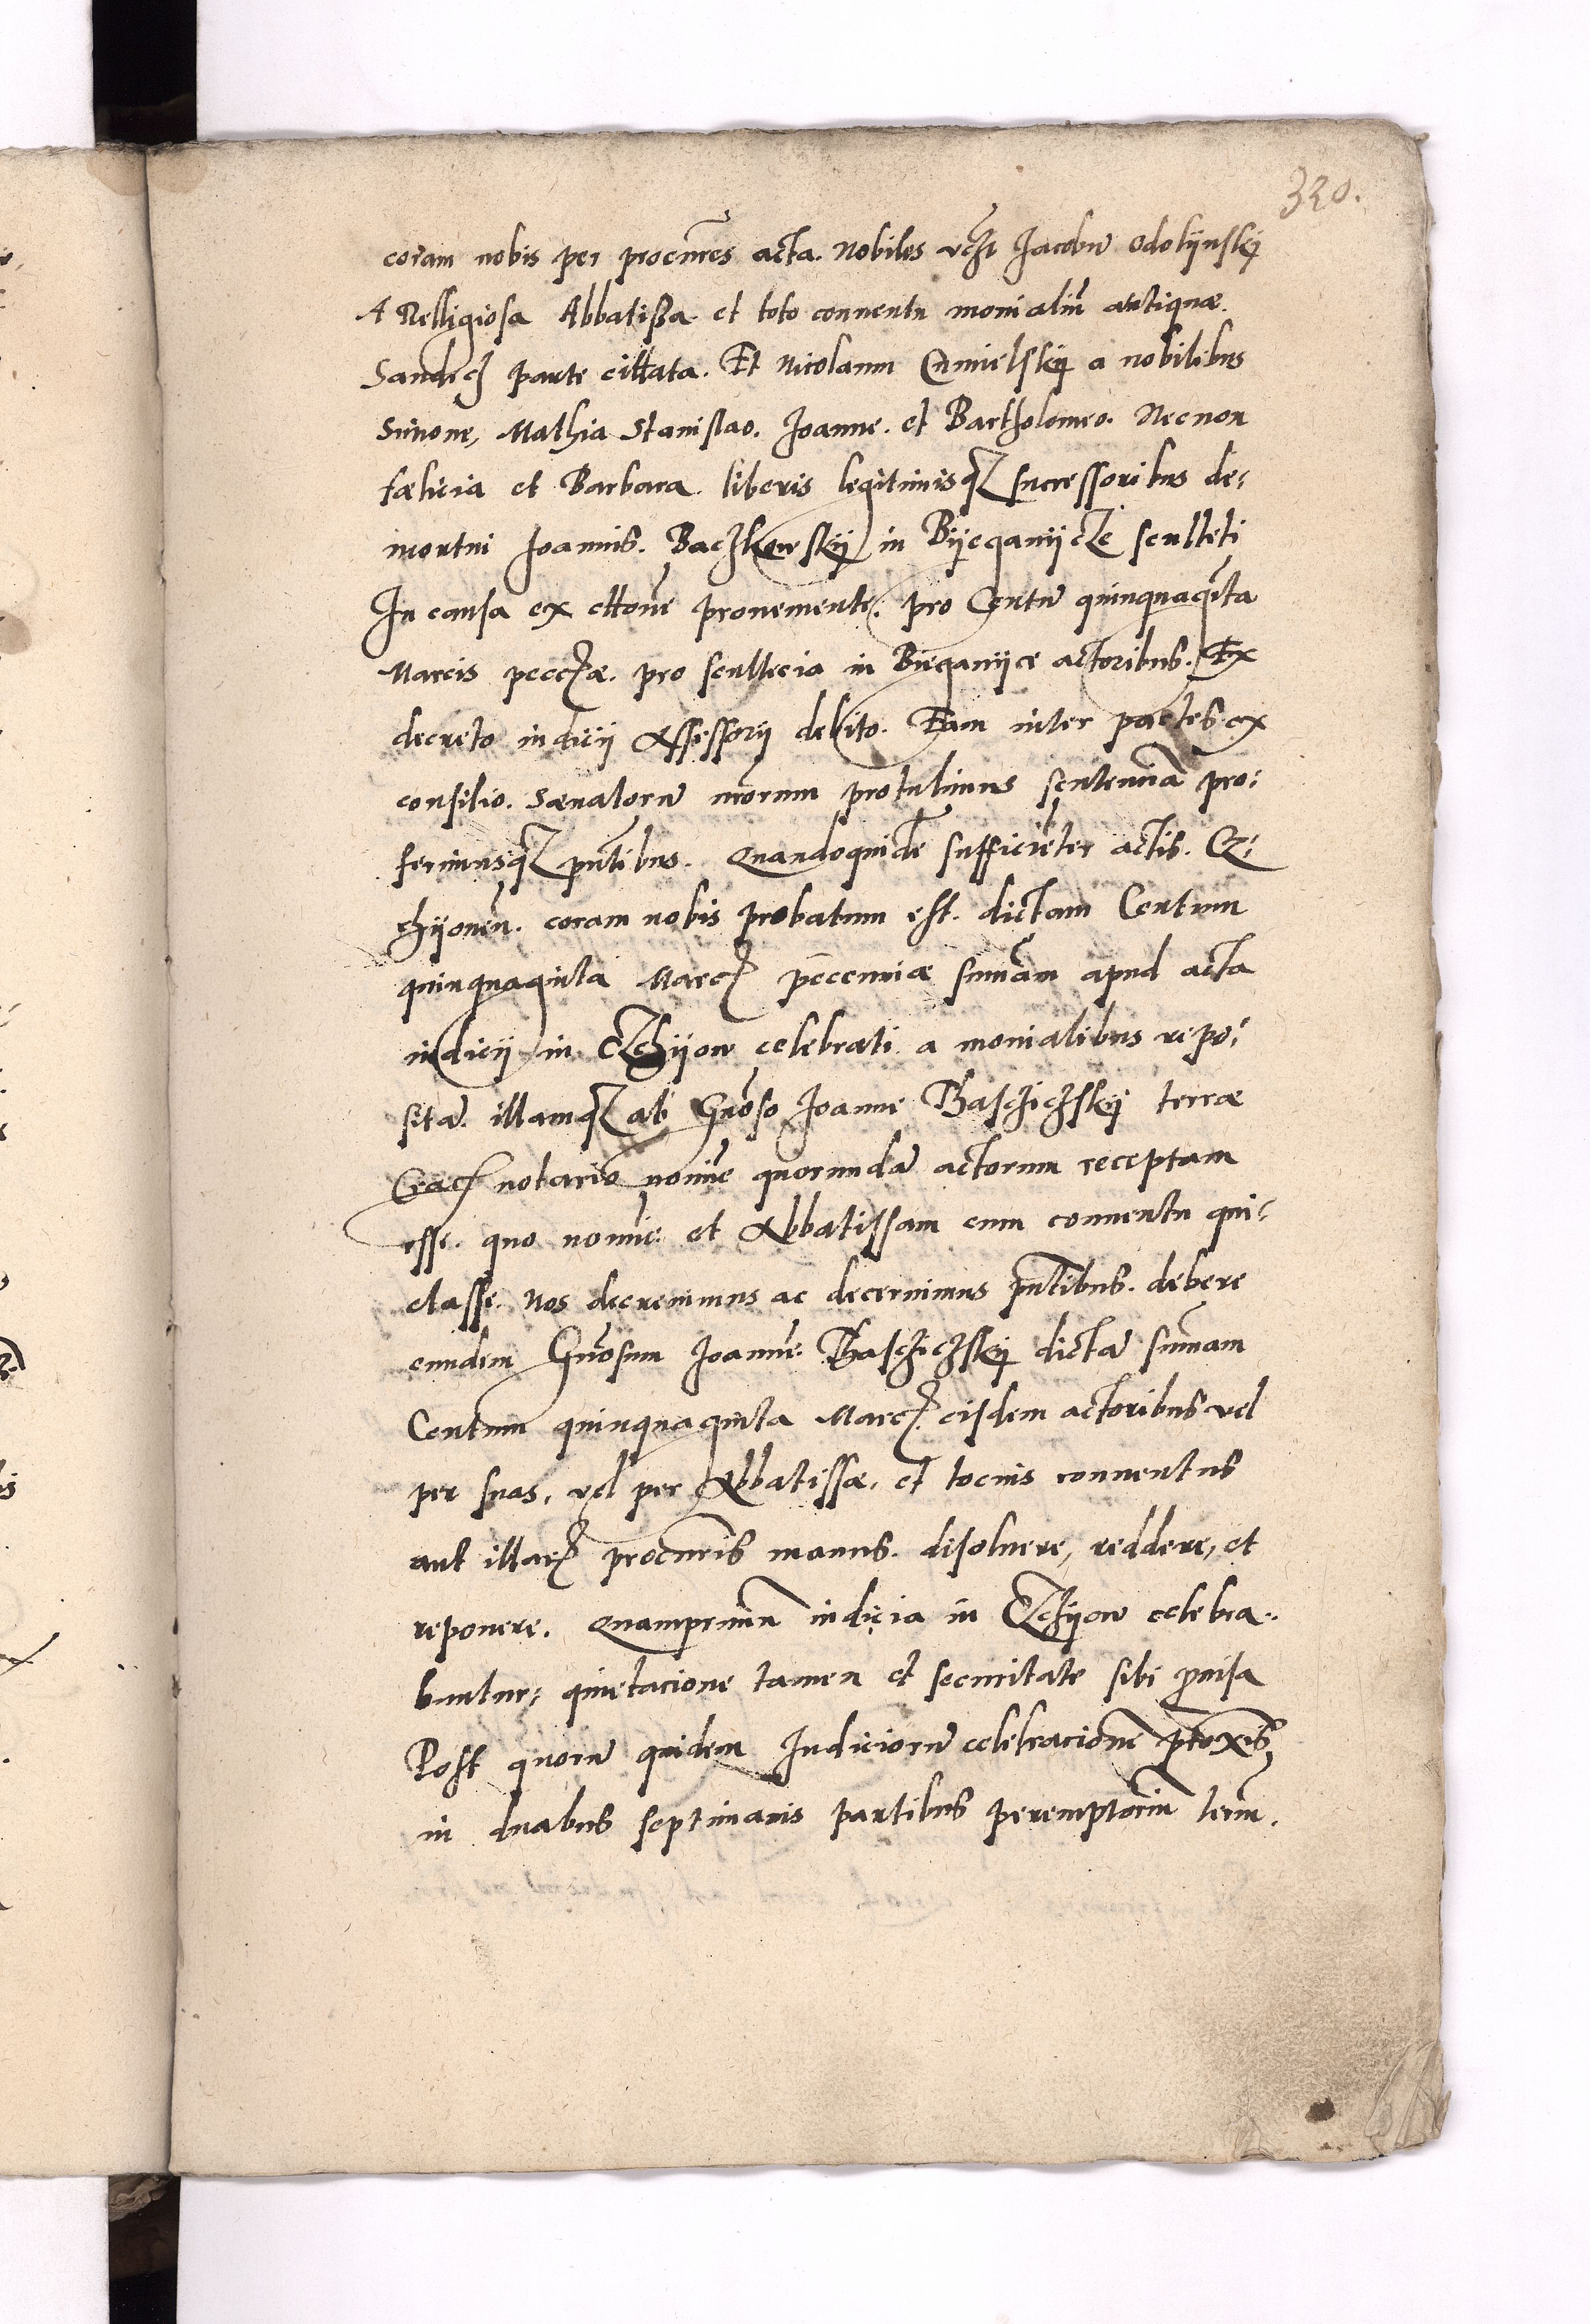 320.
coram nobis per procur̃es acta. Nobiles vcꝫt Jacobũ Odolijnskij
A Relligiosa Abbatißa et toto conuentu monialiũ antiquæ.
Sandecz parte cittata. Et Nicolaum Chmielskij a nobilibus
Simone, Mathia Stanislao. Joanne. et Bartholomeo. Necnon
fælicia et Barbara. liberis legitimisqꝫ successoribus de:
mortui Joannis. Baczkowskij in Bijeganijcze sculteti
In causa ex cttone proueniente. pro Centũ quinquagĩta
Marcis peccꝫæ. pro scultecia in Bieganijce actoribus. Ex
decreto iudicij Assessorij debito. Eam inter partes ex
consilio. Sænatorũ nr̃orum protulimus sentenciã pro:
ferimusqꝫ pñtibus. Quandoquidẽ sufficiẽter actis. Cz:
chijouen̄. coram nobis probatum est. dictam Centum
quinquaginta Marcꝫ peccuniæ sum̃am apud acta
iudicij in Czchijow celebrati a monialibus repo:
sitã. illamqꝫ ab Gñoso Joanne Baschiczskij terræ
Cracꝫ notario nomĩe quorundã actorum receptam
esse. quo nomĩe et Abbatissam cum conuentu qui:
etasse. Nos decreuimus ac decernimus pñtibus. debere
eundem Gñosum Joannẽ Baschiczskij dictã sum̃am
Centum quinquaginta Marcꝫ eisdem actoribus vel
per suas, vel per Abbatissæ, et tocius conuentus
aut illarꝫ procur̃is manus. disoluere, reddere, et
reponere. Quamprimũ iudicia in Czchijow celebra:
buntur: quietacione tamen et securitate sibi p̃uisa
Post quorũ quidem Judiciorũ celebracionẽ proxĩs
in duabus septimanis partibus peremptoriũ term̃.